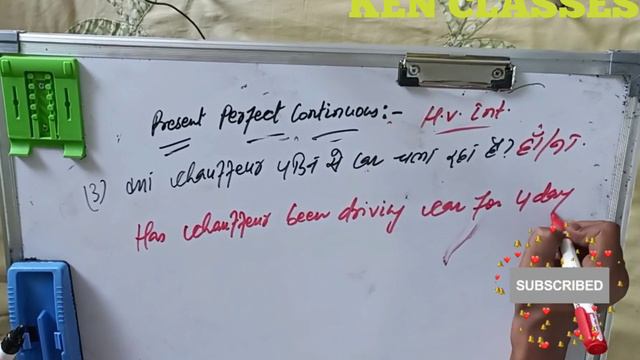 KEN CLASSES
Present Perfect Continuous:- H.V. Int.
(3) क्या chauffeur 4 दिन से car चला रहा है? हाँ/ना.
Has chauffeur been driving car for 4 day
SUBSCRIBED